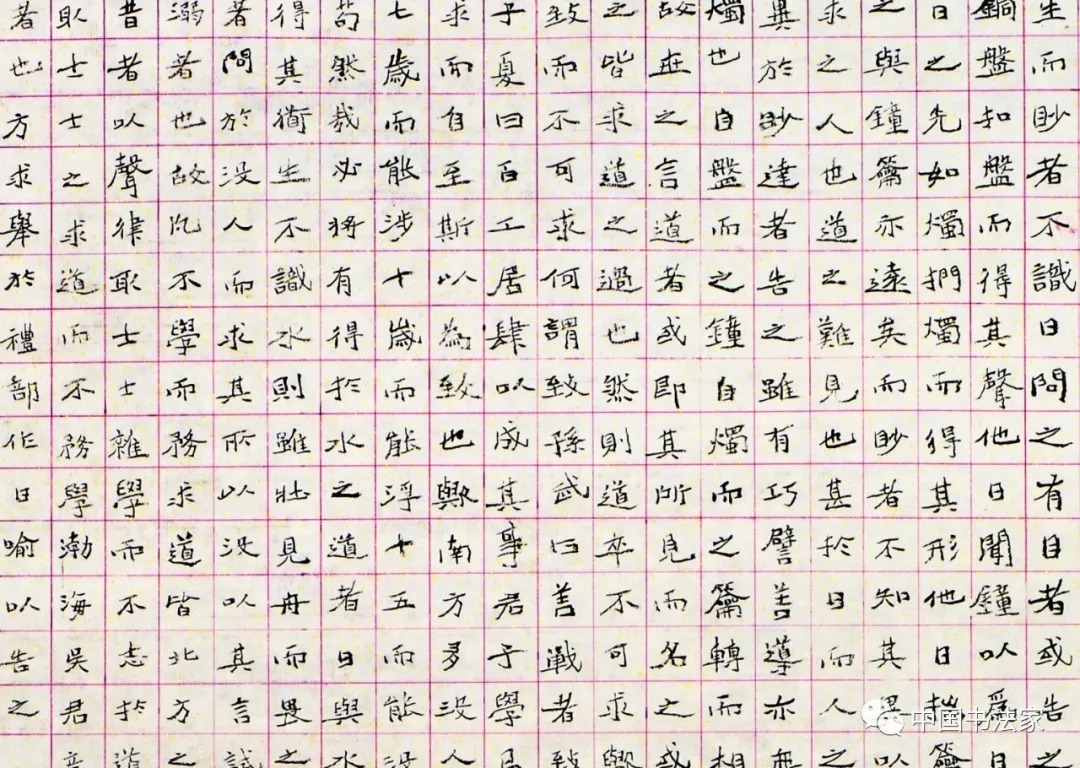 生而眇者不識日問之有目者或告之
銅盤扣盤而得其聲他日聞鐘以爲日
日之光如燭捫燭而得其形他日揣籥
之與鐘籥亦遠矣而眇者不知其異以
求之人也道之難見也甚於日而人之
異於眇達者告之雖有巧譬善導亦無
燭也自盤而之鐘自燭而之籥轉而相
故世之言道者或即其所見而名之或
之皆求道之過也然則道卒不可求歟
致而不可求何謂致孫武曰善戰者致
子夏曰百工居肆以成其事君子學
求而自至斯以為致也歟南方多沒人
七歲而能涉十歲而能浮十五而能沒
苟然哉必將有得於水之道者日與水
得其衜生不識水則雖壯見舟而畏之
者問於沒人而求其所以沒以其言試
溺者也故凡不學而務求道皆北方之
昔者以聲律取士士雜學而不志於道
取士士之求道而不務學渤海吳君彥
者也方求舉於禮部作日喻以告之
中国书法家